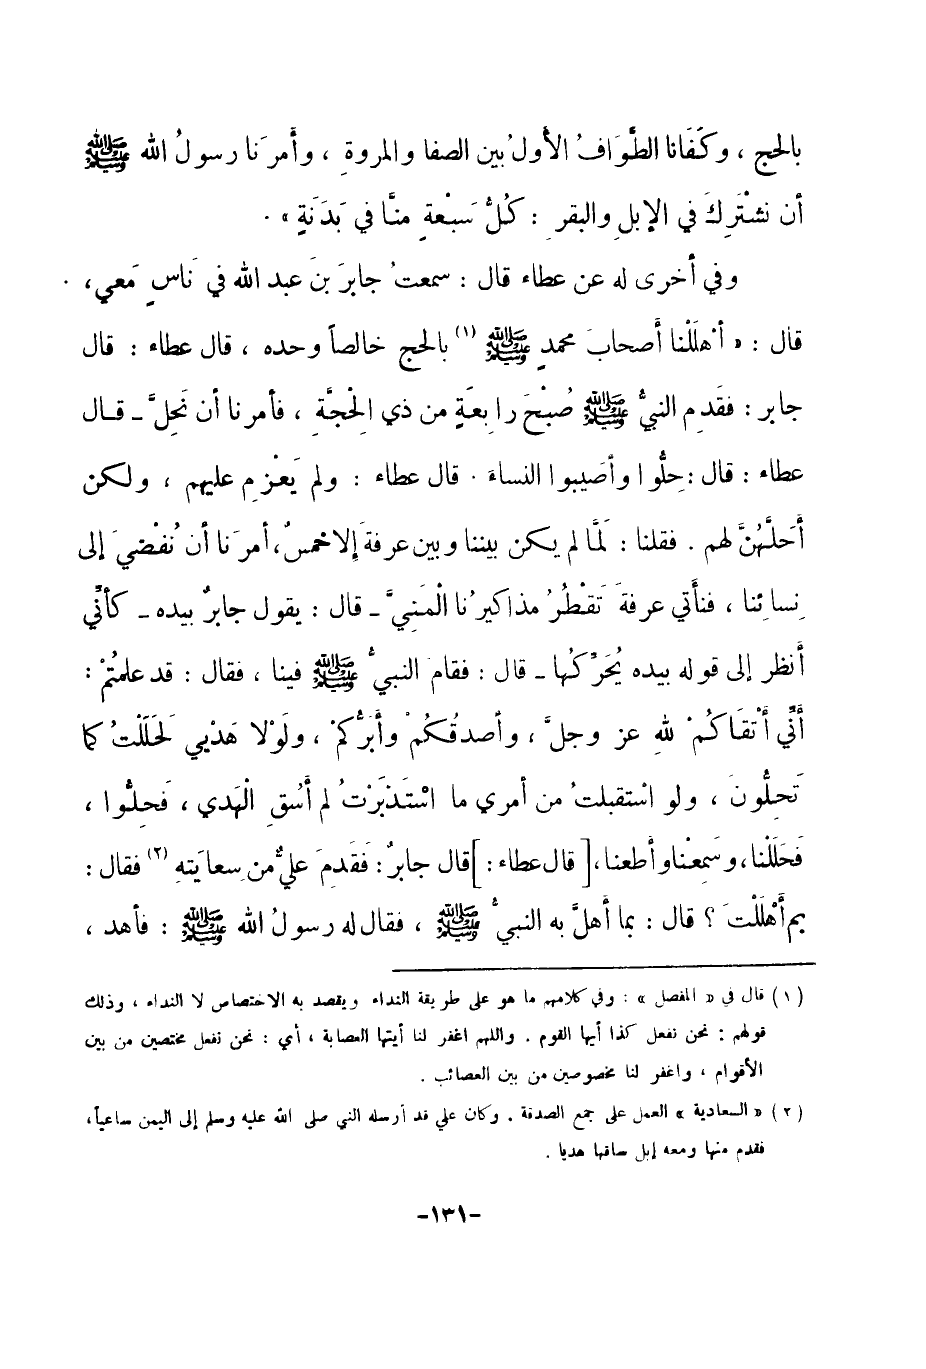 بالحج ، وكَفَانا الطَّوَافُ الأولُ بين الصفا والمروةِ ، وأَمرَنا رسولُ الله ﷺ
أن نشْتَرِكَ في الإبلِ والبقرِ : كُلُّ سَبْعةٍ منَّا في بَدَنَةٍ » .
وفي أخرى له عن عطاء قال : سمعتُ جابرَ بنَ عبد الله في نَاسٍ مَعي ،
قال : « أَهلَلْنا أَصحابَ محمدٍ ﷺ (١) بالحج خالصاً وحده ، قال عطاء : قال
جابر : فقَدِم النبيُّ ﷺ صُبْحَ رابعَةٍ من ذي الحِجَّةِ ، فأمرنا أن نَحِلَّ ـ قـال
عطاء : قال : حِلُّوا وأصيبوا النساءَ . قال عطاء : ولم يَعْزِم عليهم ، ولكن
أَحَلَّهُنَّ لهم . فقلنا : لَمَّا لم يكن بيننا وبين عرفةَ إلا خمسٌ ، أمرَنا أن نُفْضِيَ إلى
نِسائِنا ، فنأتي عرفةَ تَقطُرُ مذاكيرُنا الْمَنِيَّ ـ قال : يقول جابرٌ بيده ـ كأنِّي
أنظر إلى قوله بيده يُحَرِّكُها ـ قال : فقامَ النبيُّ ﷺ فينا ، فقال : قد علمتُمْ :
أَنِّي أَتْقَاكُمْ لله عز وجلَّ ، وأصدقُكُمْ وأَبَرُّكُمْ ، ولَوْلا هَدْيِي لَحَلَلْتُ كما
تَحِلُّونَ ، ولو اسْتقبلتُ من أمري ما اسْتَدْبَرْتُ لم أَسُقِ الْهَدي ، فَحِلُّوا ،
فَحَلَلْنا ، وسَمِعْنا وأَطعنا ، [ قال عطاء : ] قال جابرٌ : فَقَدِمَ عليٌّ من سِعايَتهِ (٢) فقال :
بِم أَهْلَلْتَ ؟ قال : بما أَهلَّ به النبيُّ ﷺ ، فقال له رسولُ الله ﷺ : فأهد ،
(١) قال في « المفصل » : وفي كلامهم ما هو على طريقة النداء ويقصد به الاختصاص لا النداء ، وذلك
قولهم : نحن نفعل كذا أيها القوم . واللهم اغفر لنا أيتها العصابة ، أي : نحن نفعل مختصين من بين
الأقوام ، واغفر لنا مخصوصين من بين العصائب .
(٢) « السعادية » العمل على جمع الصدقة . وكان علي قد أرسله النبي صلى الله عليه وسلم إلى اليمن ساعياً ،
فقدم منها ومعه إبل ساقها هديا .
-١٣١-